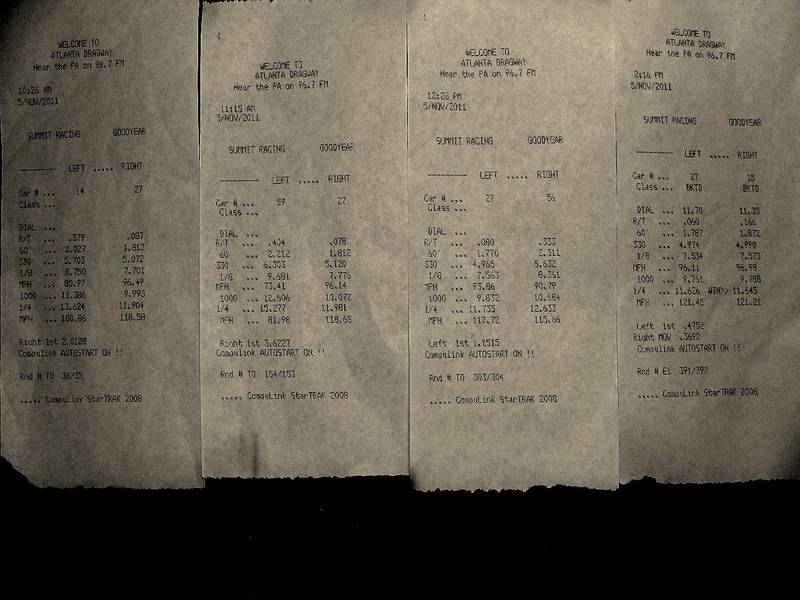 WELCOME TO
ATLANTA DRAGWAY
Hear the PA on 96.7 FM
10:26 AM
5/NOV/2011
SUMMIT RACING GOODYEAR
--------- LEFT ..... RIGHT
Car # ... 14 27
Class ...
DIAL ...
R/T ... .379 .087
60' ... 2.027 1.813
330 ... 5.703 5.072
1/8 ... 8.750 7.701
MPH ... 80.97 96.49
1000 ... 11.386 9.993
1/4 ... 13.624 11.904
MPH ... 100.86 118.58
Right 1st 2.0128
CompuLink AUTOSTART ON !!
Rnd # TO 36/35
..... CompuLink StarTRAK 2008
WELCOME TO
ATLANTA DRAGWAY
Hear the PA on 96.7 FM
11:15 AM
5/NOV/2011
SUMMIT RACING GOODYEAR
--------- LEFT ..... RIGHT
Car # ... 59 27
Class ...
DIAL ...
R/T ... .404 .078
60 ... 2.212 1.812
330 ... 6.303 5.120
1/8 ... 9.691 7.776
MPH ... 73.41 96.14
1000 ... 12.606 10.072
1/4 ... 15.277 11.981
MPH ... 81.98 118.65
Right 1st 3.6227
CompuLink AUTOSTART ON !!
Rnd # TO 154/153
..... CompuLink StarTRAK 2008
WELCOME TO
ATLANTA DRAGWAY
Hear the PA on 96.7 FM
12:28 PM
5/NOV/2011
SUMMIT RACING GOODYEAR
--------- LEFT ..... RIGHT
Car # ... 27 56
Class ...
DIAL ...
R/T ... .080 .333
60' ... 1.770 2.311
330 ... 4.965 5.632
1/8 ... 7.563 8.361
MPH ... 93.86 90.79
1000 ... 9.832 10.684
1/4 ... 11.735 12.633
MPH ... 117.72 115.66
Left 1st 1.1515
CompuLink AUTOSTART ON !!
Rnd # TO 303/304
..... CompuLink StarTRAK 2008
WELCOME TO
ATLANTA DRAGWAY
Hear the PA on 96.7 FM
2:16 PM
5/NOV/2011
SUMMIT RACING GOODYEAR
--------- LEFT ..... RIGHT
Car # ... 27 15
Class ... BKTD BKTD
DIAL ... 11.70 11.35
R/T ... .060 .166
60' ... 1.787 1.872
330 ... 4.974 4.990
1/8 ... 7.534 7.573
MPH ... 96.11 96.98
1000 ... 9.761 9.788
1/4 ... 11.626 WIN>> 11.645
MPH ... 121.45 121.21
Left 1st .4752
Right MOV .3692
CompuLink AUTOSTART ON !!
Rnd # EL 391/392
..... CompuLink StarTRAK 2008